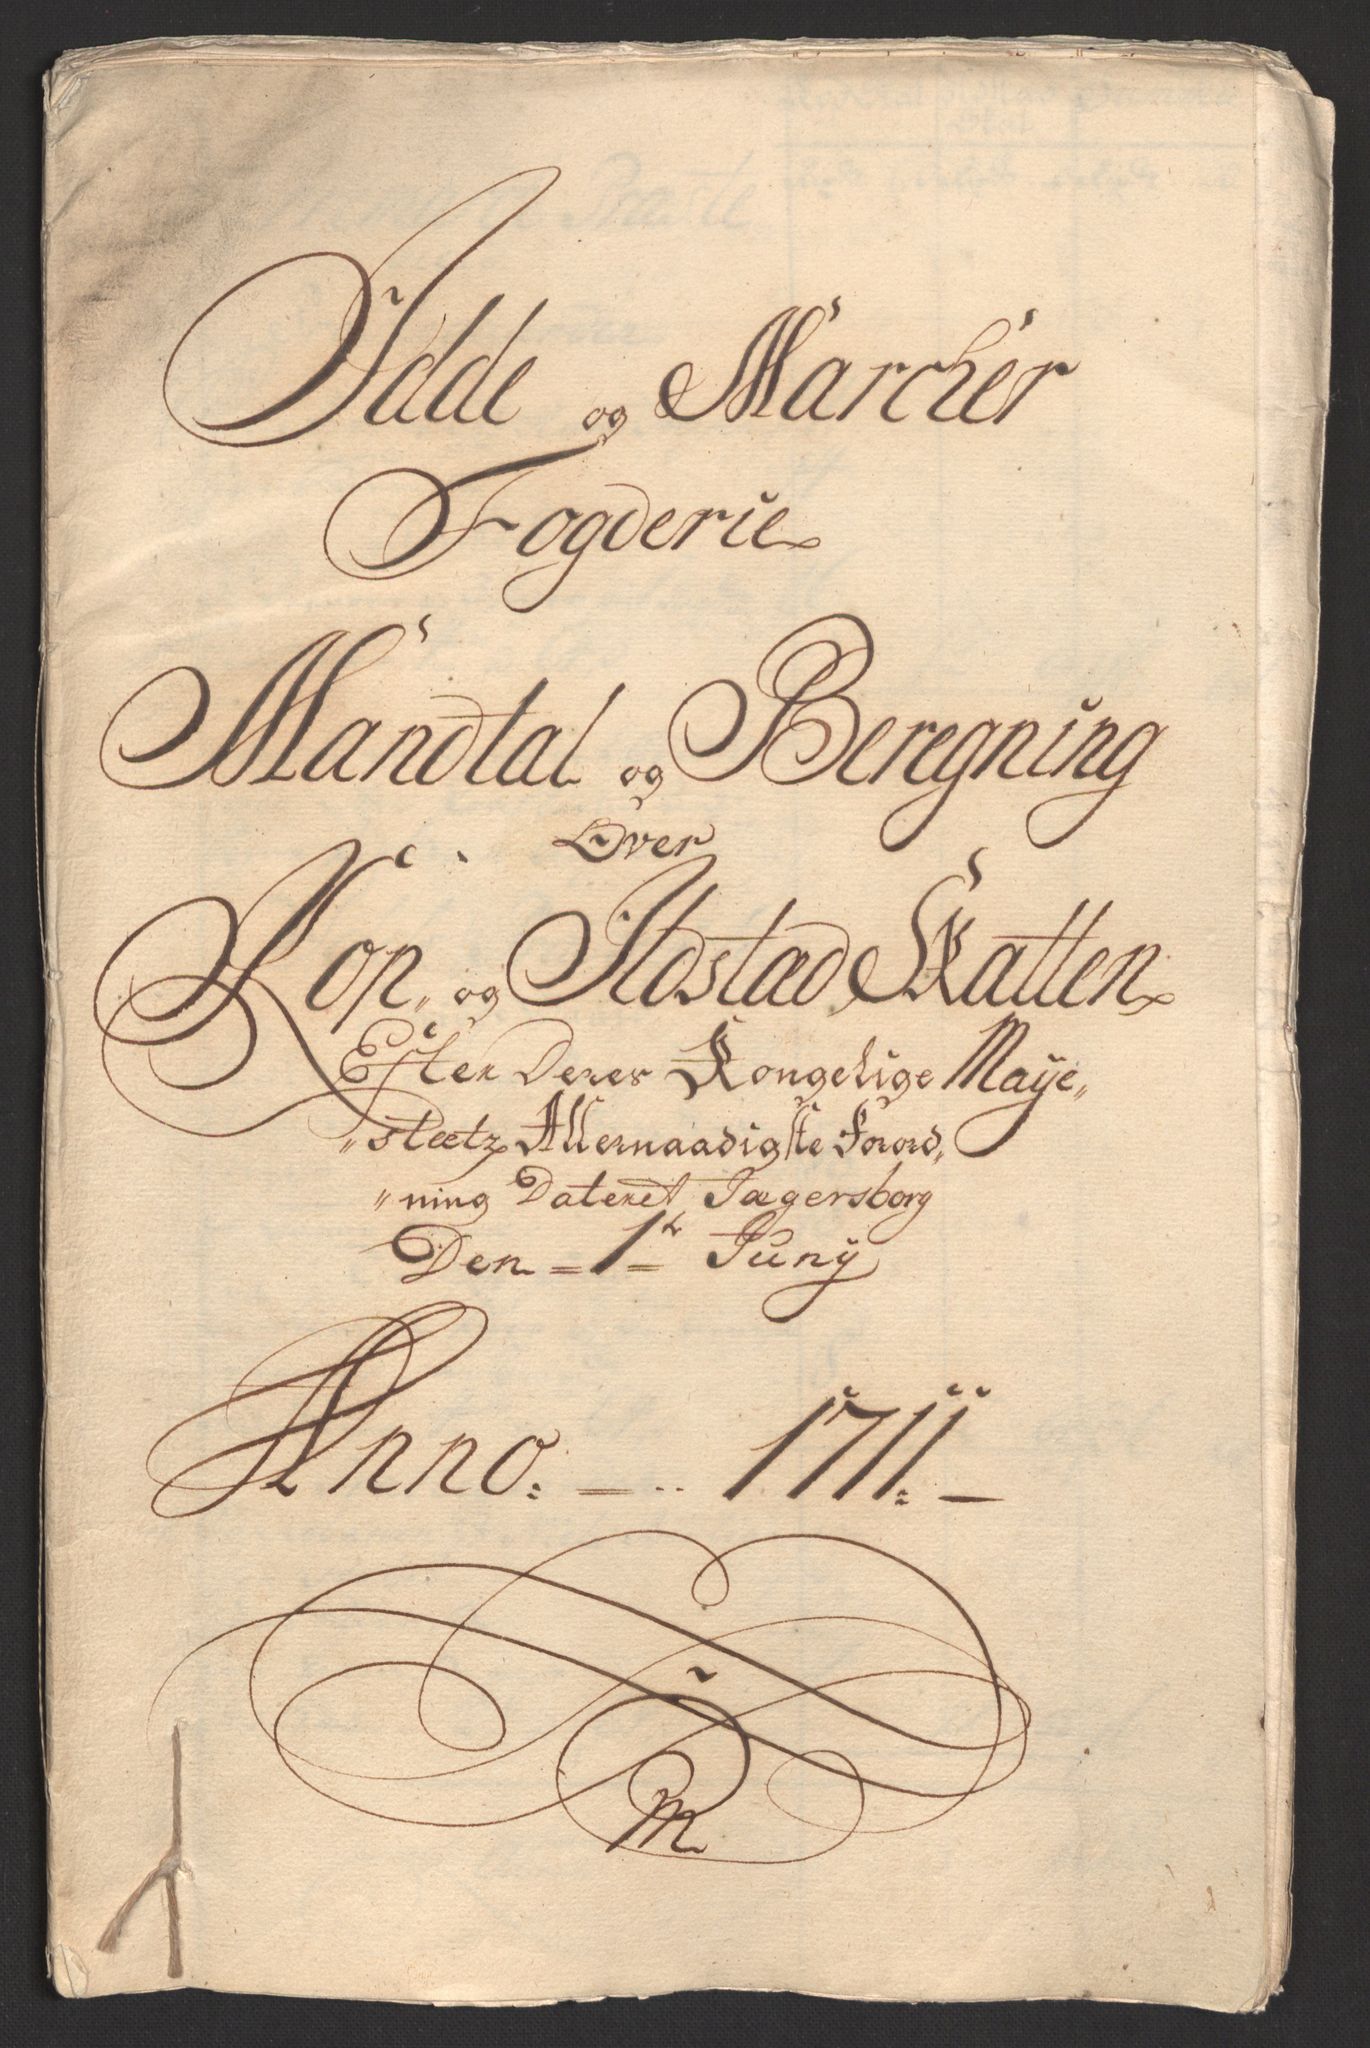 Idde og Marcher
Fogderie
Mandtal og Beregning
Over
Kop„ og Ildstæd Skatten
Efter Deres Kongelige Maye„
„stætz Allernaadigste Forord„
„ning Dateret Jægersborg
Den = 1 = Juny
Anno: = .. 1711: —